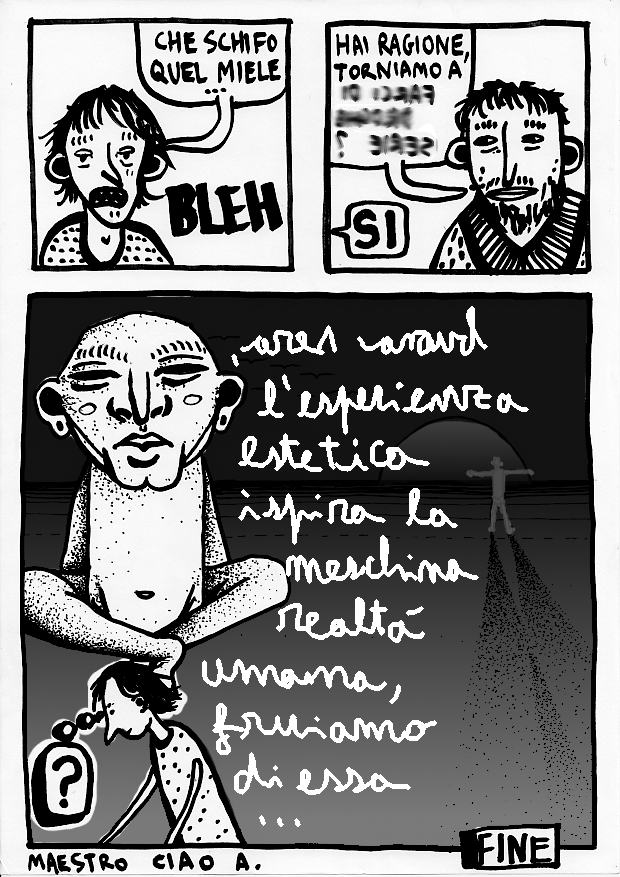 CHE SCHIFO
QUEL MIELE
...
BLEH
HAI RAGIONE,
TORNIAMO A
FARCI DI
SERIE ?
SI
l'esperienza
estetica
ispira la
meschina
realtá
umana,
fruiamo
di essa
...
?
MAESTRO CIAO A.
FINE